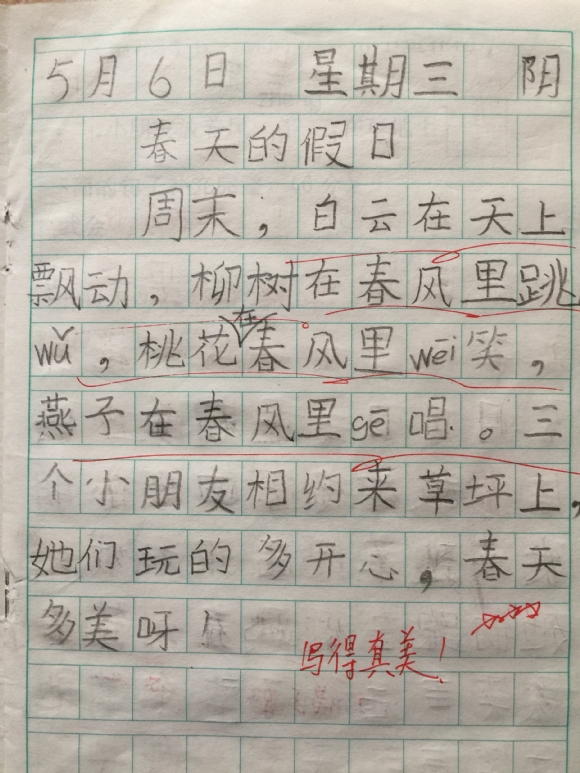 5月6日 星期三 阴
春天的假日
周末，白云在天上
飘动，柳树在春风里跳
wǔ，桃花在春风里wēi笑，
燕子在春风里gē唱。三
个小朋友相约来草坪上，
她们玩的多开心，春天
多美呀！
写得真美！